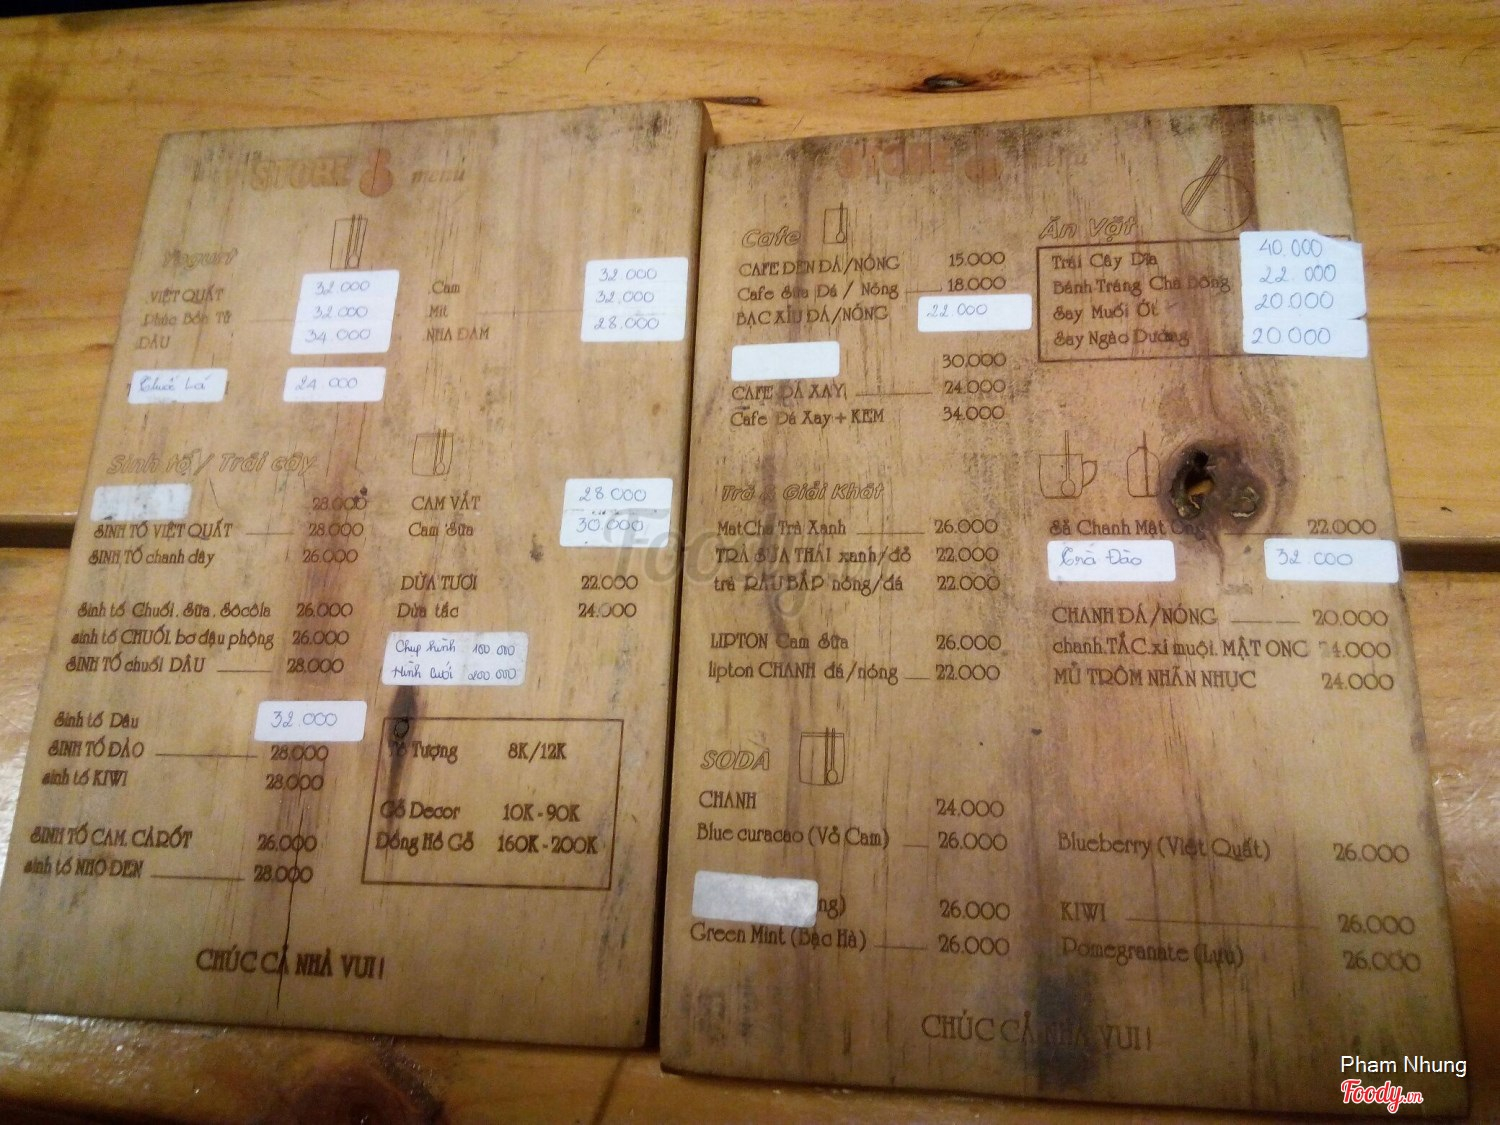 STORE menu
Yogurt
VIỆT QUẤT 32.000
Phúc Bồn Tử 32.000
DÂU 34.000
24 000
Cam 32.000
Mít 32.000
NHA ĐAM 28.000
Sinh tố / Trái cây
28.000
SINH TỐ VIỆT QUẤT 28.000
SINH TỐ chanh dây 26.000
Sinh tố Chuối. Sữa. Sôcôla 26.000
sinh tố CHUỐI. bơ đậu phộng 26.000
SINH TỐ chuối DÂU 28.000
Sinh tố Dâu 32.000
SINH TỐ DÀO 28.000
sinh tố KIWI 28.000
SINH TỐ CAM. CÀRỐT 26.000
sinh tố NHO ĐEN 28.000
CAM VẮT 28000
Cam Sữa 30.000
DỪA TƯƠI 22.000
Dừa tắc 24.000
Chụp hình 100 000
Hình Cưới 200 000
Tô Tượng 8K/12K
Gỗ Decor 10K - 90K
Đồng Hồ Gỗ 160K - 200K
CHÚC CẢ NHÀ VUI!
STORE menu
Cafe
CAFE ĐEN ĐÁ/NÓNG 15.000
Cafe Sữa Đá / Nóng 18.000
BẠC XỈU ĐÁ/NÓNG 22.000
30.000
CAFE ĐÁ XAY 24.000
Cafe Đá Xay + KEM 34.000
Ăn Vặt
Trái Cây Dĩa 40.000
Bánh Tráng Chà Bông 22.000
Say Muối Ớt 20.000
Say Ngào Đường 20.000
Trà & Giải Khát
MatCha Trà Xanh 26.000
TRÀ SỮA THÁI xanh/đỏ 22.000
trà RÂU BẮP nóng/đá 22.000
LIPTON Cam Sữa 26.000
lipton CHANH đá/nóng 22.000
Sả Chanh Mật Ong 22.000
Trà Đào 32.000
CHANH ĐÁ/NÓNG 20.000
chanh.TẮC.xí muội. MẬT ONG 24.000
MỦ TRÔM NHÃN NHỤC 24.000
SODA
CHANH 24.000
Blue curacao (Vỏ Cam) 26.000
ng) 26.000
Green Mint (Bạc Hà) 26.000
Blueberry (Việt Quất) 26.000
KIWI 26.000
Pomegranate (Lựu) 26.000
CHÚC CẢ NHÀ VUI!
Foody
Pham Nhung
Foody.vn